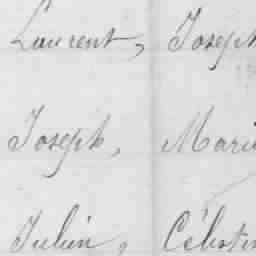 Laurent, Joseph
Joseph, Marie
Julien, Célestin